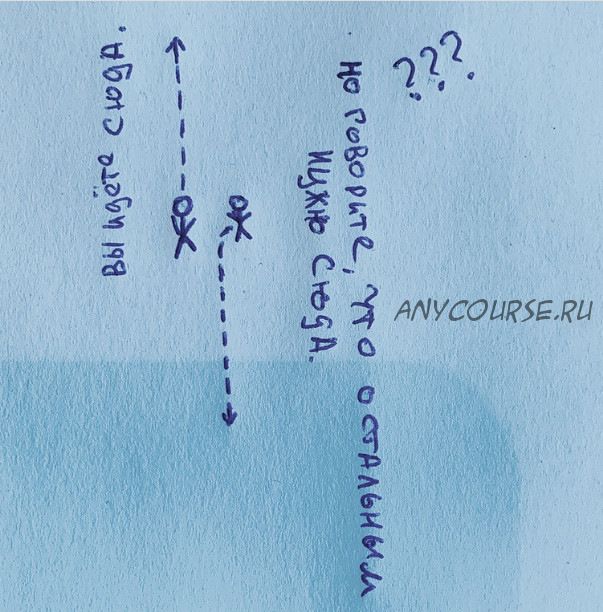 Вы идёте сюда.
Но говорите, что остальным
нужно сюда.
???
ANYCOURSE.RU